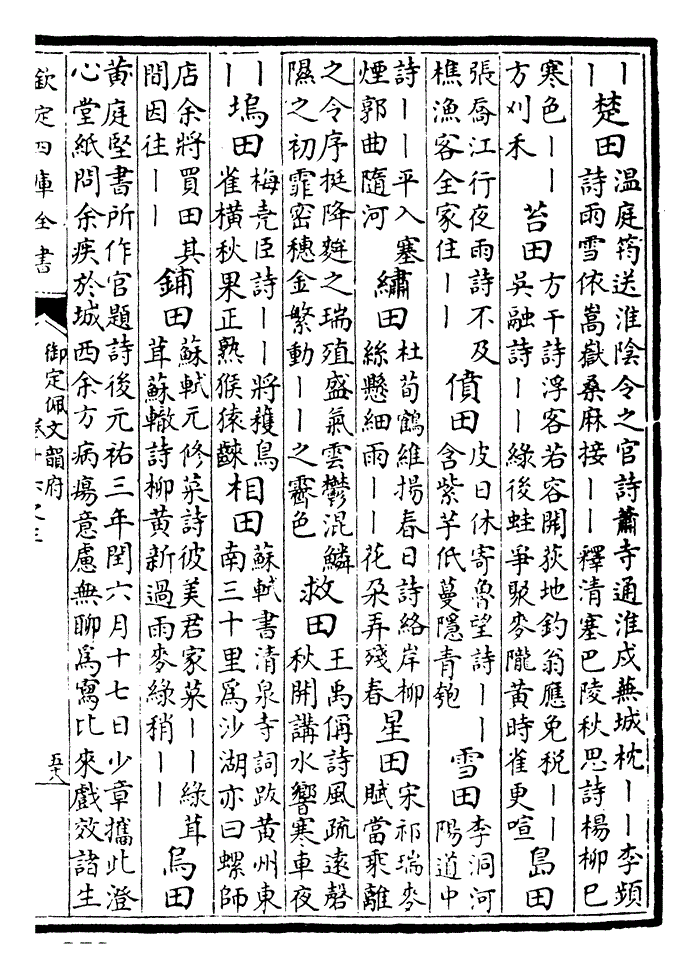 ｜｜楚田温庭筠送淮陰令之官詩蕭寺通淮戍蕪城枕｜｜李頻
詩雨雪依嵩嶽桑麻接｜｜釋清塞巴陵秋思詩楊柳已
寒色｜｜方刈禾苔田方干詩浮客若容開荻地釣翁應免税｜｜
吳融詩｜｜綠後蛙爭聚麥隴黄時雀更喧島田
張喬江行夜雨詩不及
樵漁客全家住｜｜僨田皮日休寄魯望詩｜｜
含紫芋低蔓隱青匏雪田李洞河
陽道中
詩｜｜平入塞
煙郭曲隨河繡田杜荀鶴維揚春日詩絡岸柳
絲懸細雨｜｜花朶弄殘春星田宋祁瑞麥
賦當乘離
之令序挺降麰之瑞殖盛氣雲鬱混鱗
隰之初霏密穗金繁動｜｜之霽色救田王禹偁詩風疏遠磬
秋開講水響寒車夜
｜｜塢田梅堯臣詩｜｜將穫鳥
雀横秋果正熟猴猿相田蘇軾書清泉寺詞跋黄州東
南三十里爲沙湖亦曰螺師
店余將買田其
間因往｜｜鋪田蘇軾元修菜詩彼美君家菜｜｜綠茸
茸蘇轍詩柳黄新過雨麥綠稍｜｜烏田
黄庭堅書所作官題詩後元祐三年閏六月十七日少章攜此澄
心堂紙問余疾於城西余方病瘍意慮無聊爲寫比來戲效諸生
欽定四庫全書
御定佩文韻府
五六